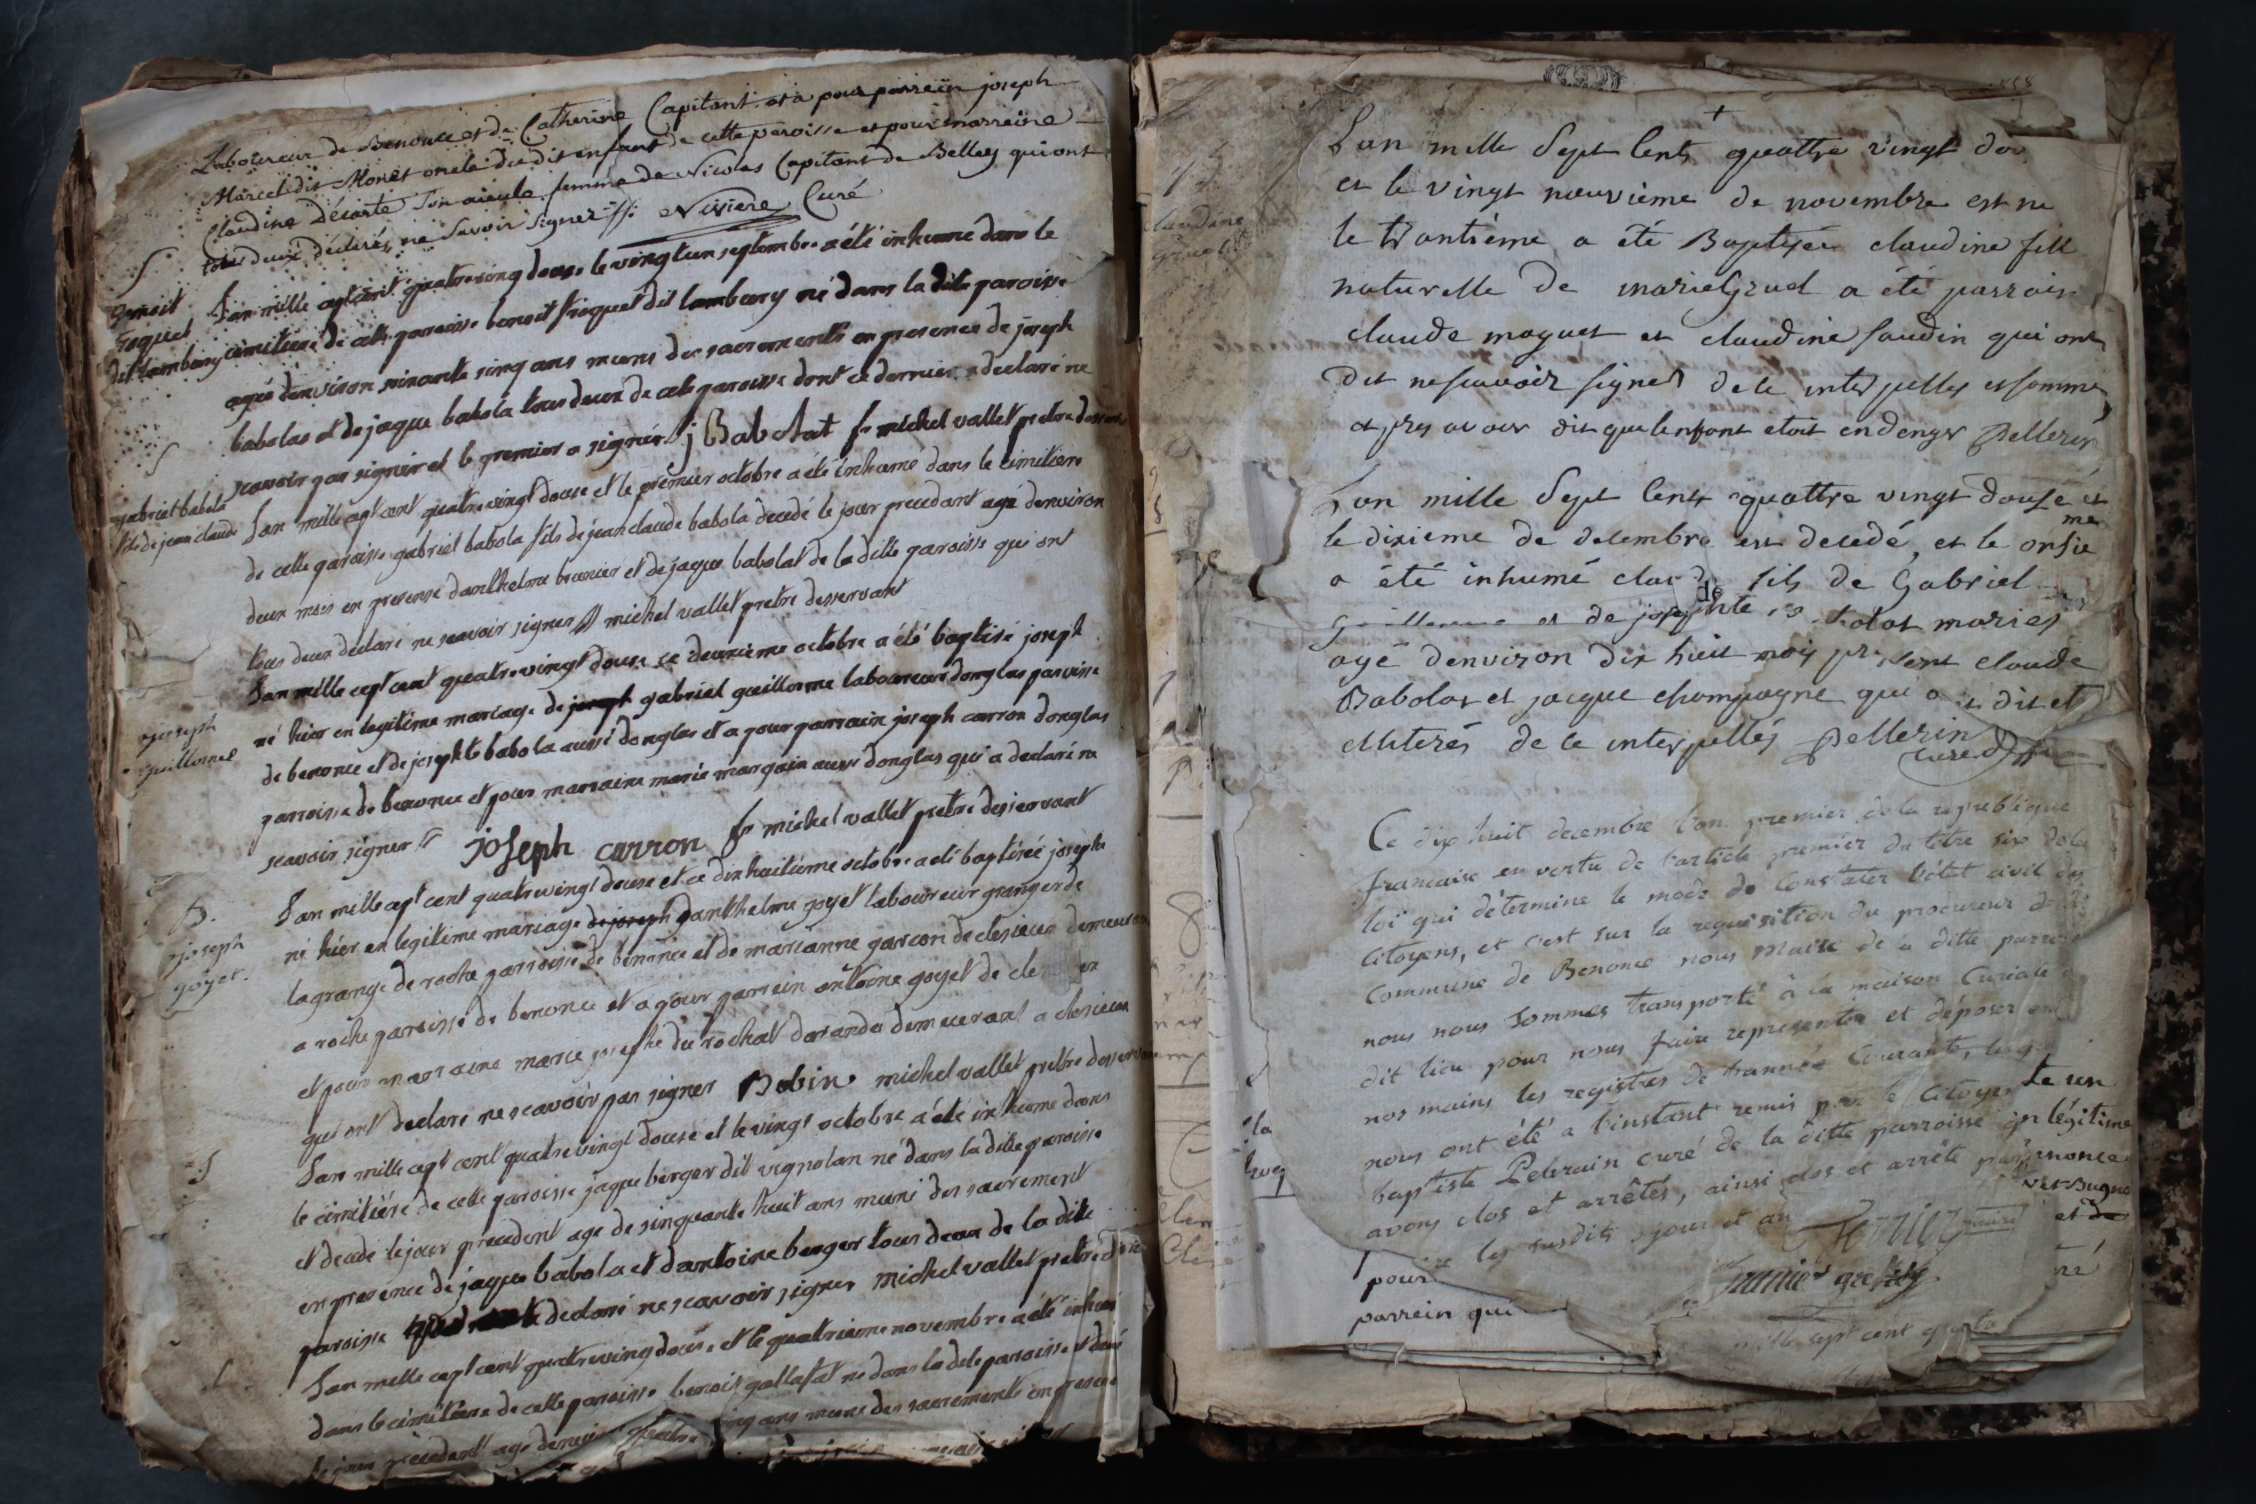 Laboureur de Benonce et de Catherine Capitant et a pour parrein joseph
Marcel dit Monet oncle du dit enfant de cette paroisse et pour marreine
Claudine Décarte son aieule femme de Nicolas Capitant de Belley qui ont
tous deux déclarés ne savoir signer Curé
S
benoit
friquet
dit lambery
Lan mille cept cent quatre vingt douse le vingt un septembre a été inhumé dans le
cimitiere de cette paroisse benoit friquet dit lambery né dans la dite paroisse
agé denviron soixante sinq ans muni des sacrements en presence de joseph
babolas et de jaque babola tous deux de cete paroisse dont ce dernier a declaré ne
scavoir pas signer et le premier a signé j Babolat fr michel vallet pretre desservant
S
gabriel babola
fils de jean claude
Lan mille cept cent quatre vingt douse et le premier octobre a été inhumé dans le cimitiere
de cette paroisse gabriel babola fils de jean claude babola decedé le jour precedant agé denviron
deux mois en presense danthelme brunier et de jaque babolat de la ditte paroisse qui ont
tous deux declaré ne scavoir signer michel vallet pretre desservant
joseph
guillermet
Lan mille cept cent quatre vingt douse ce deuxieme octobre a été baptisé joseph
né hier en legitime mariage de joseph gabriel guillerme laboureur donglas paroisse
de benonce et de josephte babola aussi donglas et a pour parrain joseph carron donglas
paroisse de benonce et pour marraine marie marguin aussi donglas qui a declaré ne
scavoir signer joseph carron fr michel vallet pretre desservant
B.
joseph
goyet.
Lan mille cept cent quatre vingt douse et ce dix huitieme octobre a été baptisé joseph
né hier en legitime mariage de joseph danthelme goyet laboureur granger de
lagrange de roche paroisse de benonce et de marianne garcon de clesieux demeurant
a roche paroisse de benonce et a pour parrein antoine goyet de
et pour marraine marie josephe du rochat demeurant a clesieux
qui ont declaré ne scavoir pas signer Bobin michel vallet pretre desservant
S
Lan mille cept cent quatre vingt douse et le vingt octobre a été inhumé dans
le cimitiére de cette paroisse jaque berger dit vignolan né dans la dite paroisse
et decedé le jour precedent agé de sinquante huit ans muni des sacrement
en presence de jaque babola et dantoine berger tous deux de la dite
paroisse declaré ne scavoir signer michel vallet pretre
Lan mille cept cent quatre vingt douse et le quatrieme novembre a été inhumé
dans le cimitiere de cette paroisse benoit gallatat né dans la dite paroisse et decedé
le jour precedent agé denviron quatre ans muni des sacrements en presence
Claudine
gruel
+
Lan mille Sept Cents quattre vingt
et le vingt nœuvieme de novembre est ne
le trantiéme a été Baptisée claudine fill
naturelle de marie Gruel a été parrain
claude moguet et claudine faudin qui ont
dit ne scavoir signer de ce interpelles et sommé
apres avoir dit que lenfant etoit en denger Pellerin
Lan mille Sept Cents quattre vingt douse et
le dixieme de decembre est decedé, et le onsieme
a été inhumé claude fils de Gabriel
guillerme et de josephte Babolat mariés
agé denviron dix huit mois present claude
Babolat et jacque chompagne qui ont dit et
illiterés de ce interpellés Pellerin
curé
Ce dix huit decembre l'an premier de la republique
francaise en vertu de l'article premier du titre six de la
loi qui détermine le mode de Constater l'état civil des
Citoyens, et c'est sur la requisition du procureur de la
Commune de Benonce nous Maire de la ditte parroisse
nous nous sommes transporté à la maison Curiale du
dit lieu pour nous faire representer et déposer entre
nos mains les registres de l'année Courante, lesquels
nous ont été a l'instant remis par le Citoyen
baptiste Pelerain curé de la ditte parroisse
avons clos et arrêtés, ainsi clos et arrêté par
les susdits jour et an
te un
en légitime
Benonce
et de
né
pour
parrein qui
mille sept cent quatre